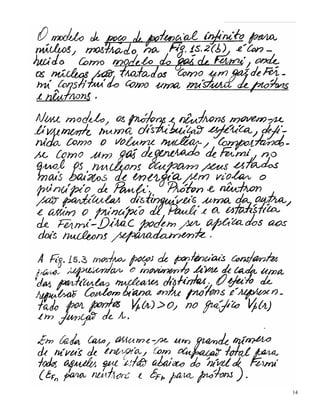 O modelo de poço de potencial infinito para
núcleos, mostrado na Fig. 15.2(b), é con-
hecido como modelo do gás de Fermi, onde
os núcleos são tratados como um gás de Fer-
mi constituído como uma mistura de prótons
e nêutrons.
Nesse modelo, os prótons e nêutrons movem-se
livremente numa distribuição esférica, defi-
nida como o volume nuclear, comportando-
se como um gás degenerado de Fermi, no
qual os nucleons ocupam seus estados
mais baixos de energia sem violar o
princípio de Pauli. Próton e nêutron
são partículas distinguíveis uma da outra,
e assim o princípio de Pauli e a estatística
de Fermi-Dirac podem ser aplicados aos
dois nucleons separadamente.
A Fig. 15.3 mostra poços de potenciais constantes
para representar o movimento livre de cada uma
das partículas nucleares distintas. O efeito de
repulsão Coulombiana entre prótons é represen-
tado por pontos Vp(r)>0, no gráfico Vp(r)
em função de r.
Em cada caso, assume-se um grande número
de níveis de energia, com ocupação total para
todos aqueles que estão abaixo do nível de Fermi
(EFn para neutrons e EFp para prótons).
14